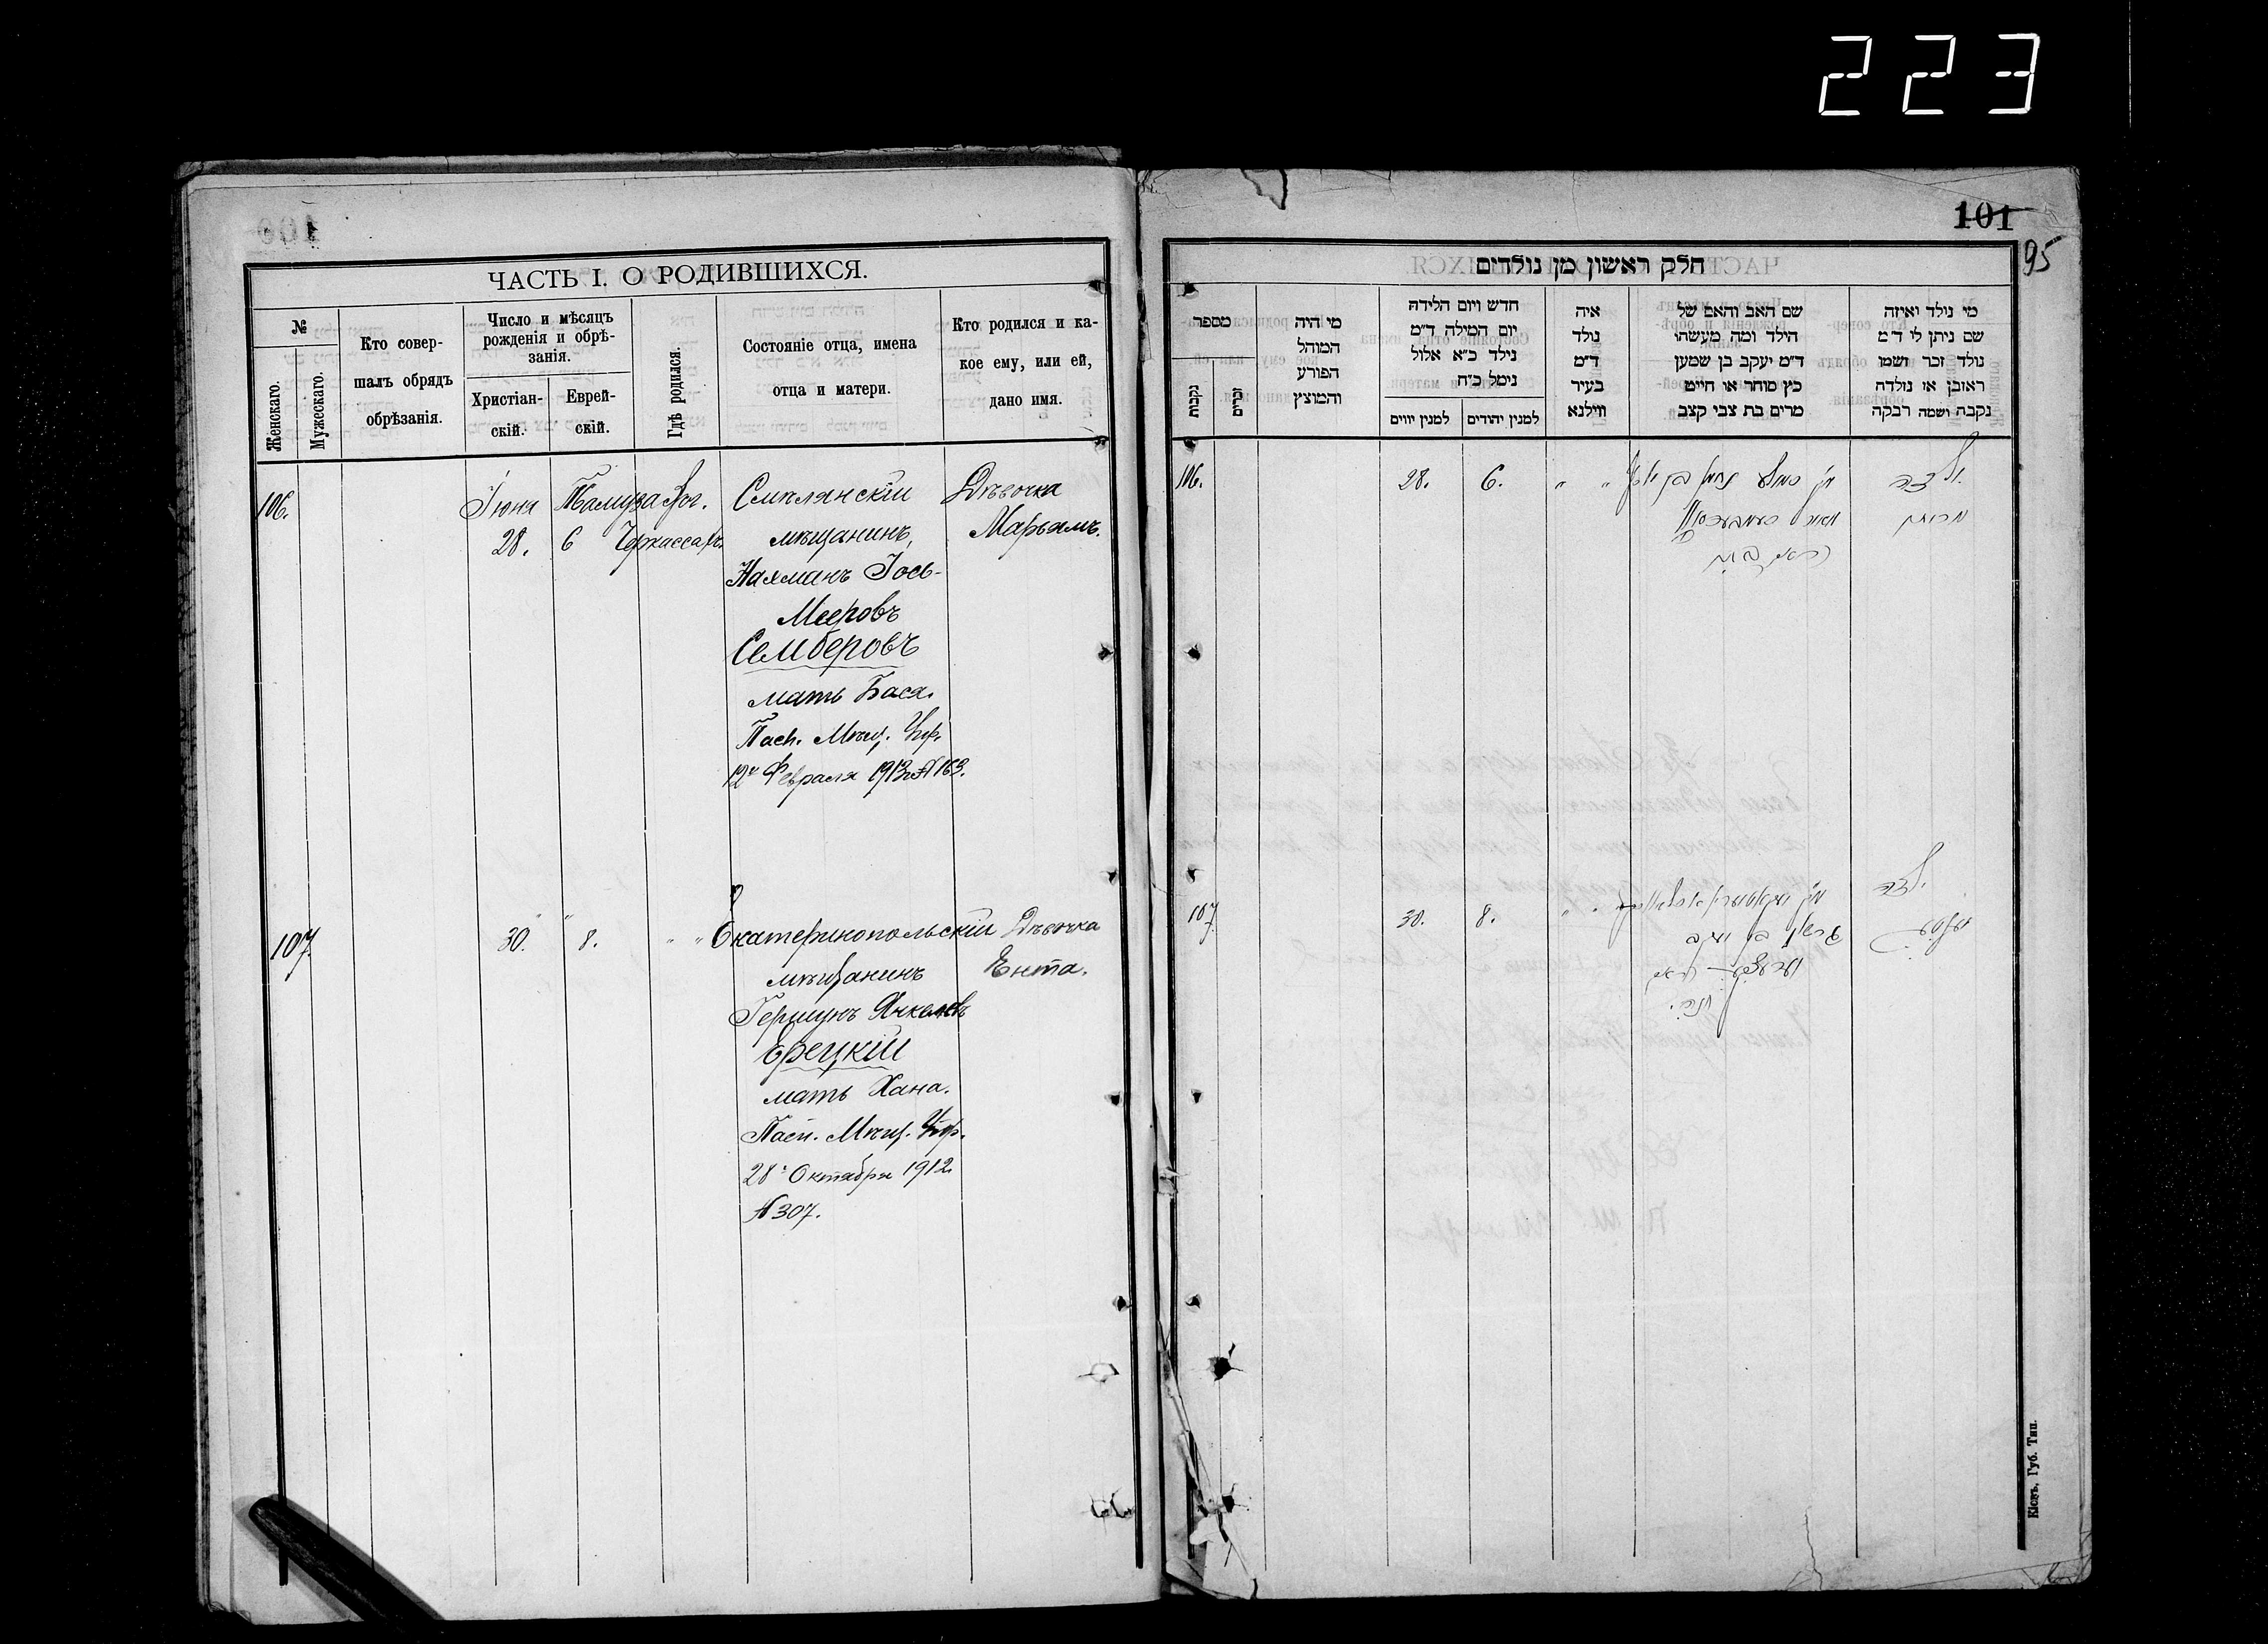 223
ЧАСТЬ I. О РОДИВШИХСЯ.
№
Женскаго.
Мужескаго.
Кто совер-
шалъ обрядъ
обрѣзанія.
Число и мѣсяцъ
рожденія и обрѣ-
занія.
Христіан-
скій.
Еврей-
скій.
Гдѣ родился.
Состояніе отца, имена
отца и матери.
Кто родился и ка-
кое ему, или ей,
дано имя.
106.
Іюня
28.
Тамуза
6
Черкассахъ
Смѣлянскій
мѣщанинъ,
Нахманъ Іось-
Мееровъ
Семберовъ
мать Бася.
Пасп. Мѣщ. Упр.
12 Февраля 1913 № 163.
Дѣвочка
Марьямъ.
107.
30.
8.
Екатеринопольскій
мѣщанинъ
Гершунъ Янкелевъ
Ерецкій
мать Хана.
Пасп. Мѣщ. Упр.
28 Октября 1912
№ 307.
Дѣвочка
Ента.
101
95
חלק ראשון מן נולדים
מי נולד ואיזה
שם ניתן לו ד״מ
נולד זכר ושמו
ראובן או נולדה
נקבה ושמה רבקה
שם האב והאם של
הילד ומה מעשהו
ד״מ יעקב בן שמען
כץ סוחר או חייט
מרים בת צבי קצב
איה
נולד
ד״מ
בעיר
ווילנא
חדש ויום הלידה
יום המילה ד״מ
נילד כ״א אלול
נימל כ״ח
למנין יהודים
למנין יווים
מי היה
המוהל
הפורע
והמוצץ
מספר
זכרים
נקבות
106.
28.
6.
ילדה
מרים
107
30.
8.
ילדה
Кіевъ, Губ. Тип.